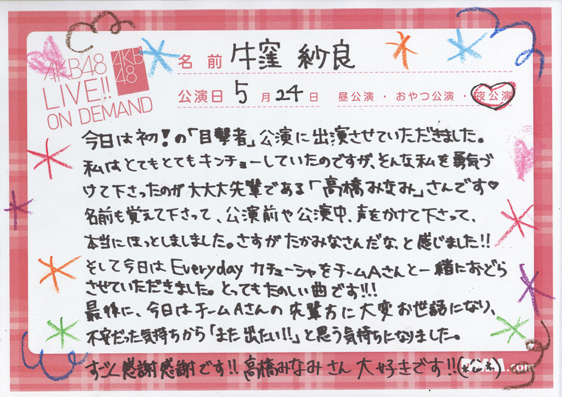 AKB48
LIVE!!
ON DEMAND
AKB
48
名前 牛窪 紗良
公演日 5月24日 昼公演・おやつ公演・夜公演
今日は初!の「目撃者」公演に出演させていただきました。
私はとてもとてもキンチョーしていたのですが、そんな私を勇気づ
けて下さったのが大大大先輩である「高橋みなみ」さんです♡
名前も覚えて下さって、公演前や公演中、声をかけて下さって、
本当にほっとしましました。さすがたかみなさんだな、と感じました!!
そして今日はEverydayカチューシャをチームAさんと一緒におどら
させていただきました。とってもたのしい曲です!!!
最後に、今日はチームAさんの先輩方に大変お世話になり、
不安だった気持ちから「また出たい!!」と思う気持ちになりました。
すごく感謝感謝です!!高橋みなみさん大好きです!!
.com